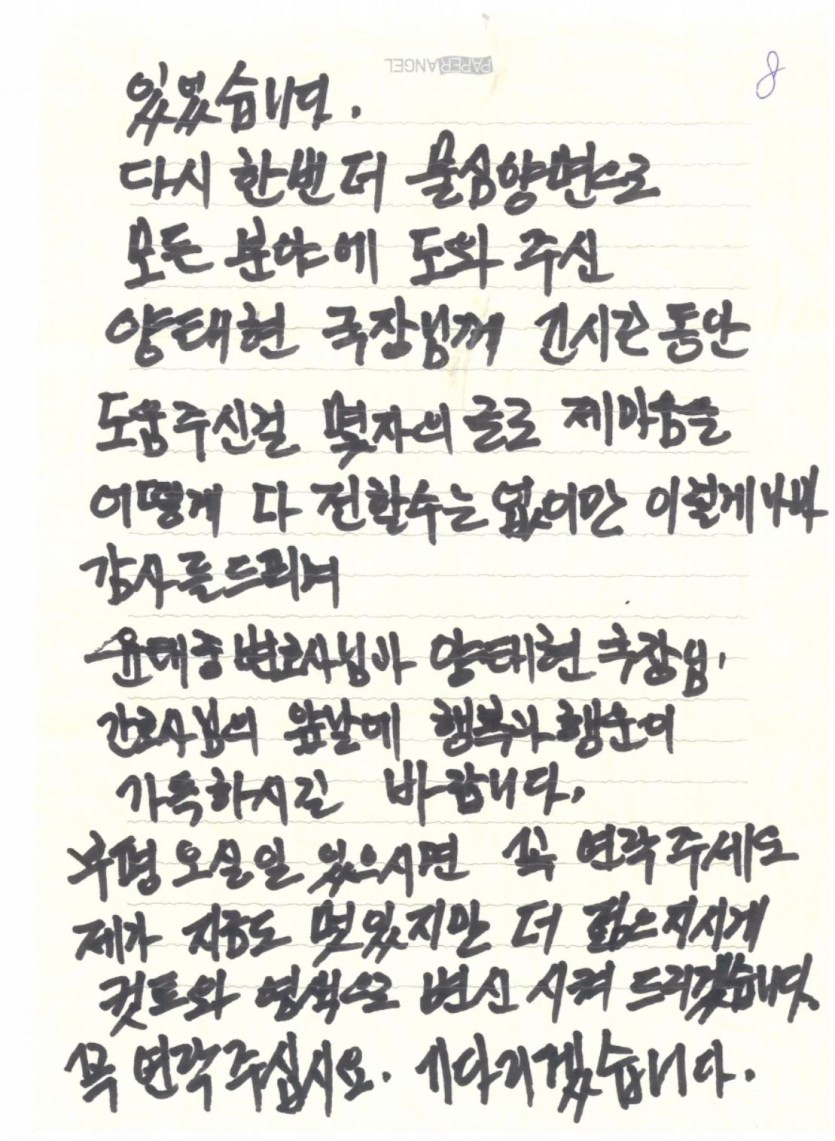 PAPER ANGEL
8
있었습니다.
다시 한번 더 물심양면으로
모든 분야에 도와 주신
양태현 국장님께 긴시간 동안
도움주신걸 몇자의 글로 제마음을
어떻게 다 전할수는 없이만 이렇게나마
감사를드리며
윤태중변호사님과 양태현 국장님,
간호사님의 앞날에 행복과 행운이
가득하시길 바랍니다.
부평 오실일 있으시면 꼭 연락주세요
제가 지금도 멋있지만 더 젊으지시게
컷트와 염색으로 변신 시켜 드리겠습니다.
꼭 연락주십시요. 기다리겠습니다.